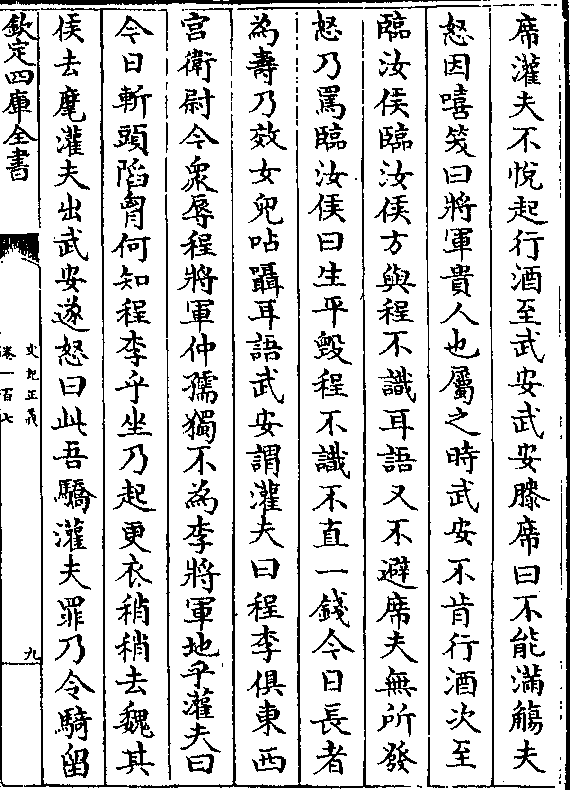 席灌夫不悅起行酒至武安武安膝席曰不能滿觴夫
怒因嘻笑曰將軍貴人也屬之時武安不肯行酒次至
臨汝侯臨汝侯方與程不識耳語又不避席夫無所發
怒乃罵臨汝侯曰生平毀程不識不直一錢今日長者
為壽乃效女兒呫囁耳語武安謂灌夫曰程李俱東西
宮衛尉今衆辱程將軍仲孺獨不為李將軍地乎灌夫曰
今日斬頭陷胷何知程李乎坐乃起更衣稍稍去魏其
侯去麾灌夫出武安遂怒曰此吾驕灌夫罪乃令騎留
欽定四庫全書
史記正義
卷一百七
九